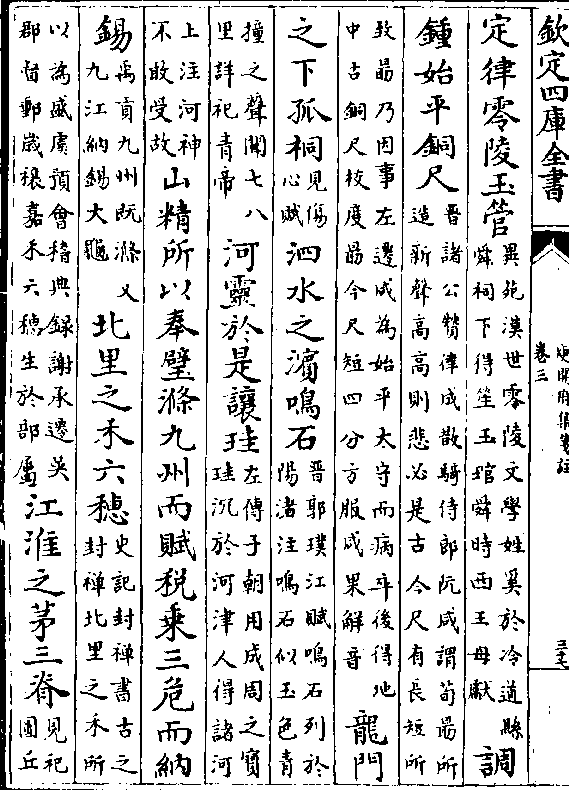 欽定四庫全書
庾開府集箋註
卷三
三十七
定律零陵玉管異苑漢世零陵文學姓奚於冷道縣舜祠下得笙玉琯舜時西王母獻調
鍾始平銅尺晉諸公贊律成散騎侍郎阮咸謂荀勗所造新聲高高則悲必是古今尺有長短所
致勗乃因事左遷咸為始平太守而病卒後得地中古銅尺校度勗今尺短四分方服咸果解音龍門
之下孤桐見傷心賦泗水之濵鳴石晉郭璞江賦鳴石列於陽渚注鳴石似玉色青
撞之聲聞七八里詳祀青帝河靈於是讓珪左傳子朝用成周之寶珪沉於河津人得諸河
上注河神不敢受故山精所以奉璧滌九州而賦稅乗三危而納
錫禹貢九州旣滌又九江納錫大龜北里之禾六穗史記封禪書古之封禪北里之禾所
以為盛虞預會稽典録謝承遷吳郡督郵嵗穰嘉禾六穗生於部屬江淮之茅三脊見祀圜丘